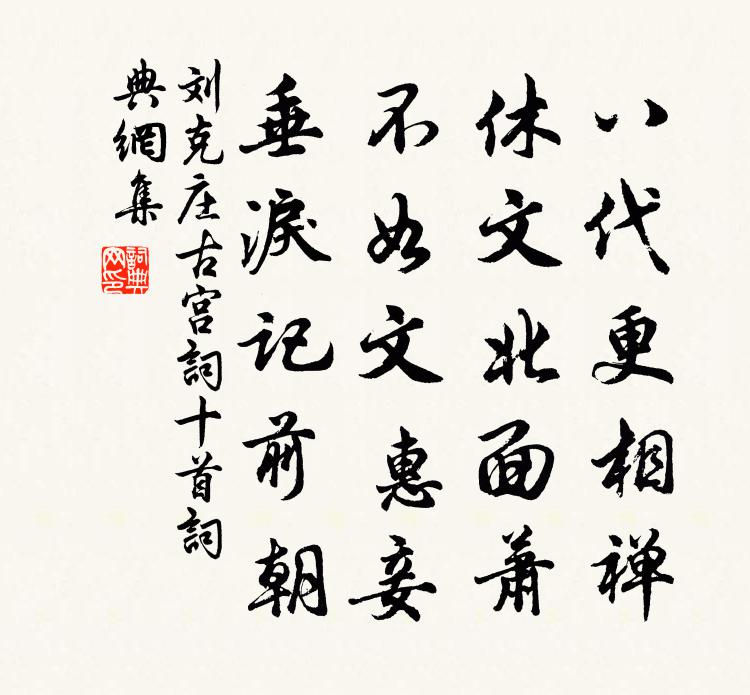 八代更相禅
休文北面萧
不如文惠妾
垂淚记前朝
刘克庄古宫詞十首詞
典網集
詞典网印